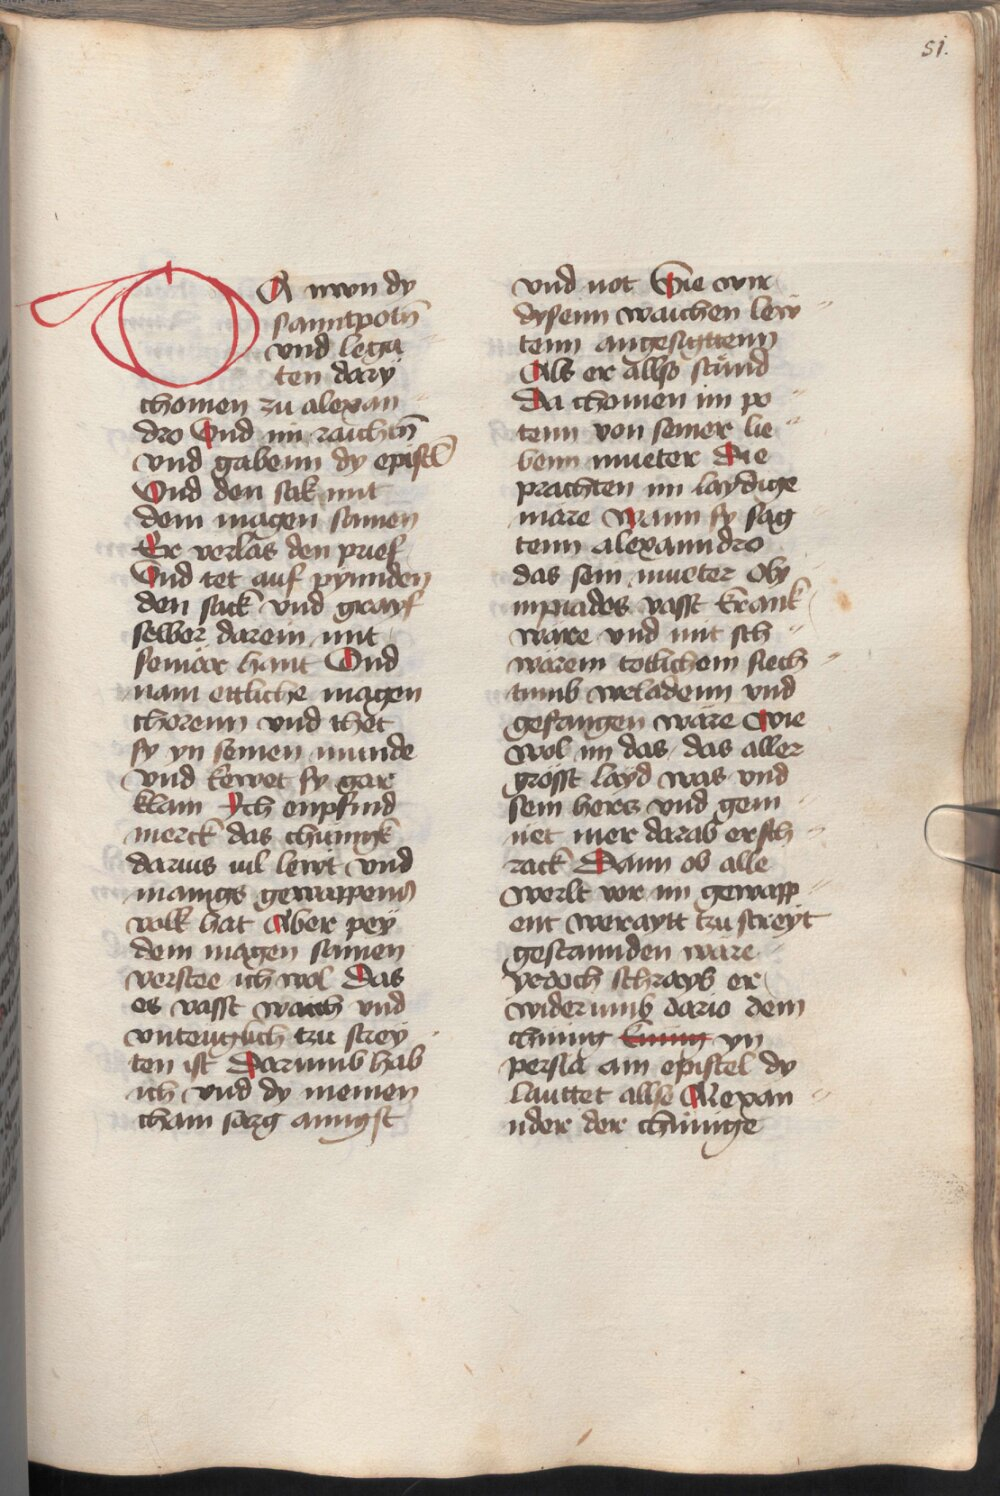 51.
DA nwn dy
sanntpotn̄
vnd lega
ten darÿ
chomen zu alexan
dro Vnd im raichtn̄
vnd gabenn dy epistl̄
Vnd den sak mit
dem magen samen
Er verlas den prief
Vnd tet auf pynnden
den sack vnd grayf
selber darein mit
seniōr hant Vnd
nam ettliche magen
chorenn vnd thet
sy yn seinen munde
vnd kewet sy gar
klain Ich enpfind
merck das chūnigk
darius vil lewt vnd
manigs gewappens
volk hat Aber pey
dem magen samen
verstee ich wol Das
es vasst waich vnd
vnteuglich tzu strey
ten ist Darumb hab
ich vnd dy meinen
chain sorg anngst
vnd not Wie wir
dysenn waichen lew
tenn angesigttenn
Als er allso stūnd
Da chomen im po
tenn von seiner lie
benn mueter Die
prachten im laydige
märe Wann sy sag
tenn alexanndro
das sein mueter Oly
mpiades vasst krank
wäre vnd mit sch
wärem totlichem siech
tumb weladenn vnd
gefangen wäre Wie
wol im das das aller
grösst layd was vnd
sein hercz vnd gem
uet mer darab ersch
rack Dann ob alle
werlt vor im gewapp
ent weraytt tzu streyt
gestannden wäre
yedoch schrayb er
widerumb dario dem
chūnig kunig yn
persia ain epistel dy
lauttet allso Alexan
nder der chūnige